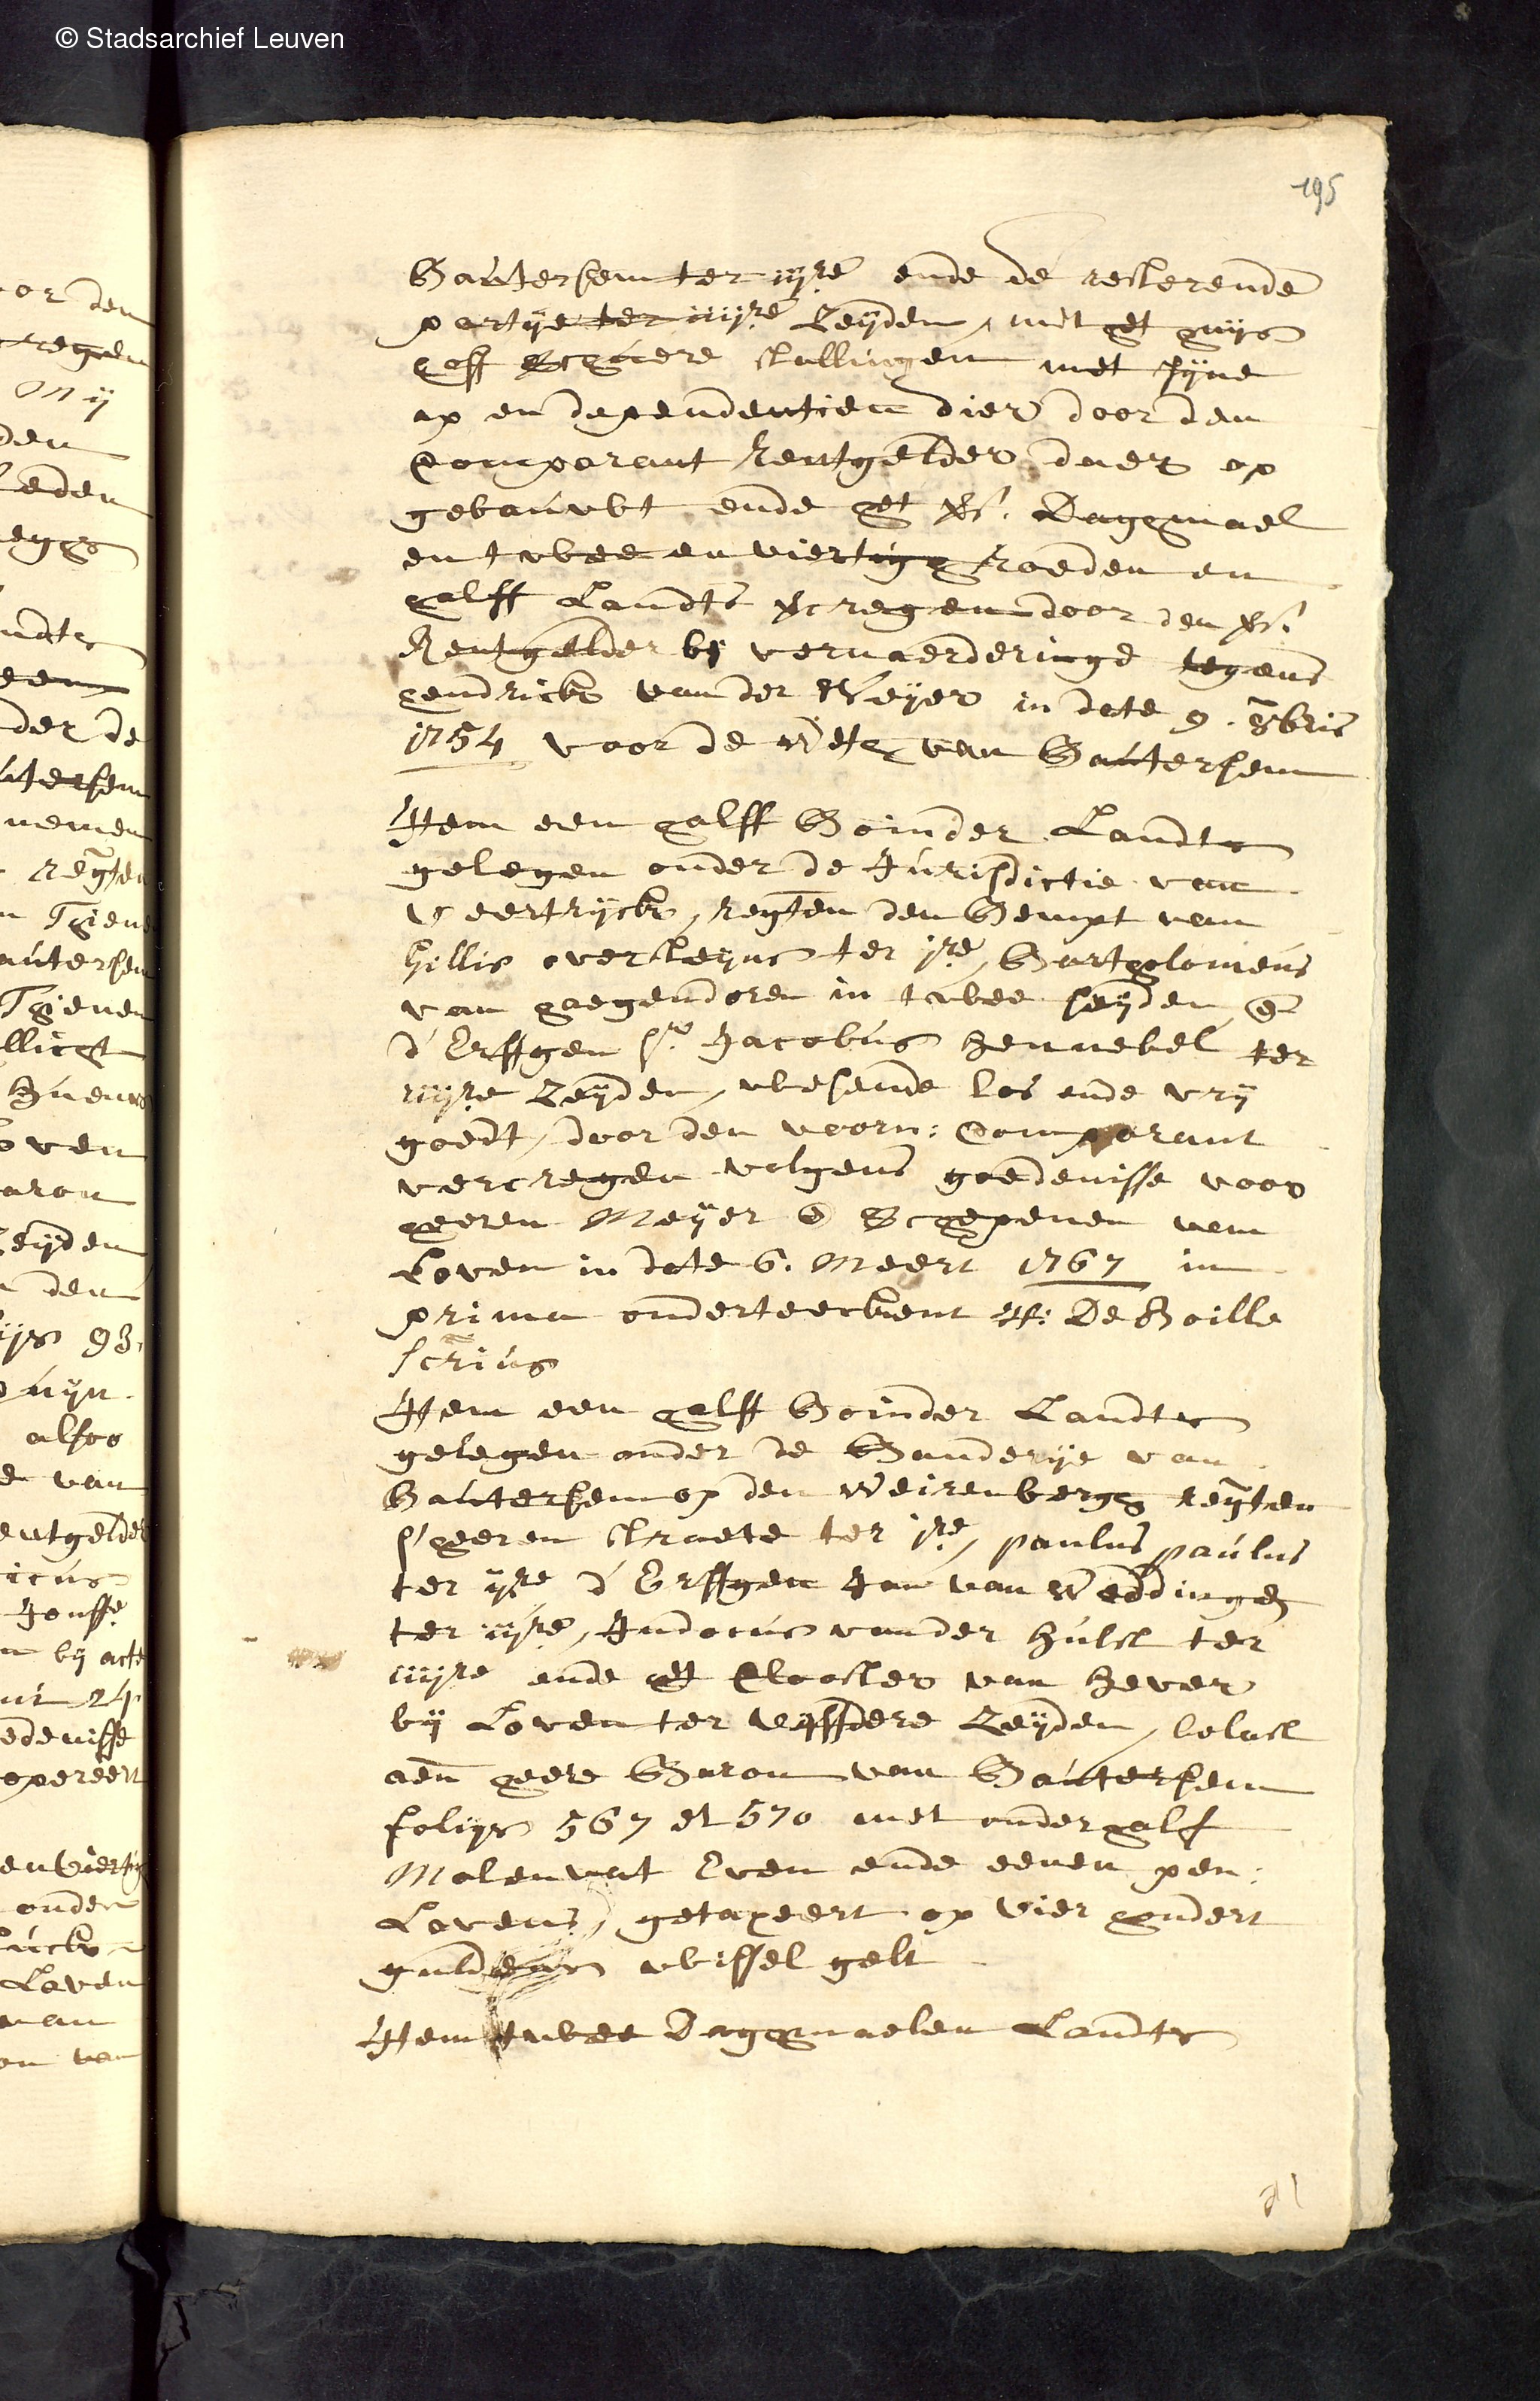 © Stadsarchief Leuven
195
Bautersem ter iijre ende de resterende
partije ter iiijre Zeijden, met het huijs
hoff schuere stallingen met sijne
ap en dependentien dier door den
Comparant Rentgelder daer op
gebauwt ende het vs. Daghmael
en twee en viertigh Roeden en
half Landts vercregen door den vs.
Rentgelder bij vernaerderinge tegens
hendrick vander Weijer in date 9. 8bris
1754 voor de Weth van Bautersem
Item een halff Boinder Landts
gelegen onder de Jurisdictie van
Veertrijck, regten den Hempt van
hillis overleijns ter jre, Bartholomeus
van haegendoren in twee seijden en
d'Erffgen sr Jacobus Hennebel ter
iiijre Zeijden, wesende los ende vrij
goedt, door den voorn: Comparant
vercregen volgens goedenisse voor
heeren Meijer en Schepenen van
Loven in date 6. Meert 1767 in
prima onderteeckent De Boille
scrius
Item een halff Boinder Landts
gelegen onder de Banderije van
Bautersem op den Weirenbergh regten
s'heeren straete ter jre, paulus paulus
ter ijre d'Erffgen Jan van Weddingen
ter iijre, Judocus vander hulst ter
iiijre ende het Clooster van Hever
bij Loven ter vijffdere Zeijden, belast
aen heere Baron van Bautersem
folijs 567 et 570 met onderhalf
Molenvat Even ende eenen pen:
Lovens, getapeert op vier hondert
guldens wissel gelt
Item twee Daghmaelen Landts